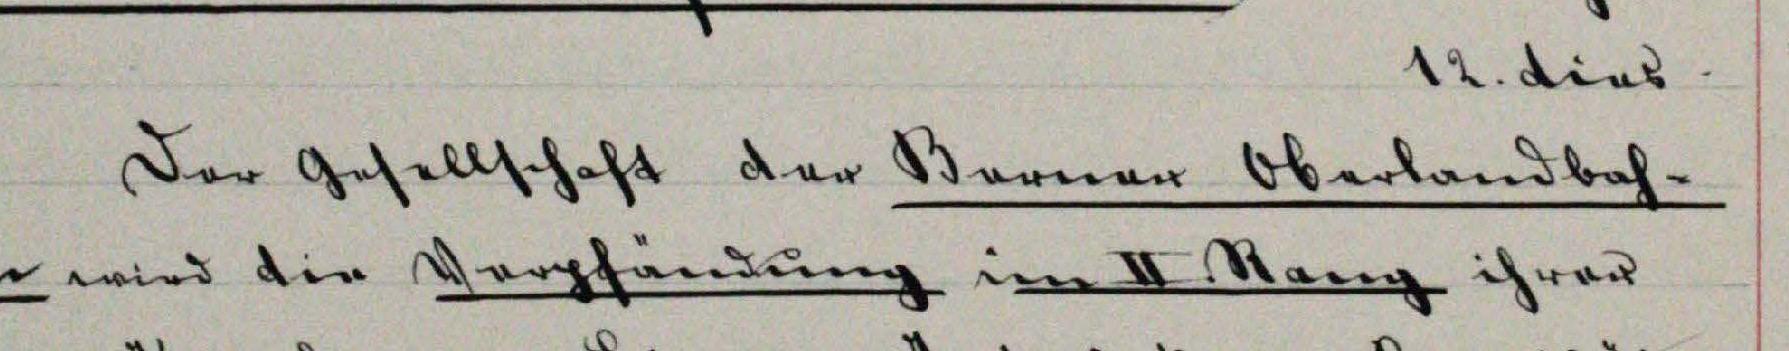 12. dies.
Der Gesellschaft der Berner Oberlandbah-
wird die Verpfändung im II Rang ihrer